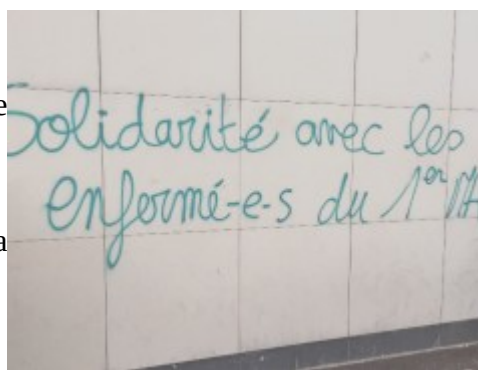 e
Solidarité avec les
enfermé-e-s du 1er
a